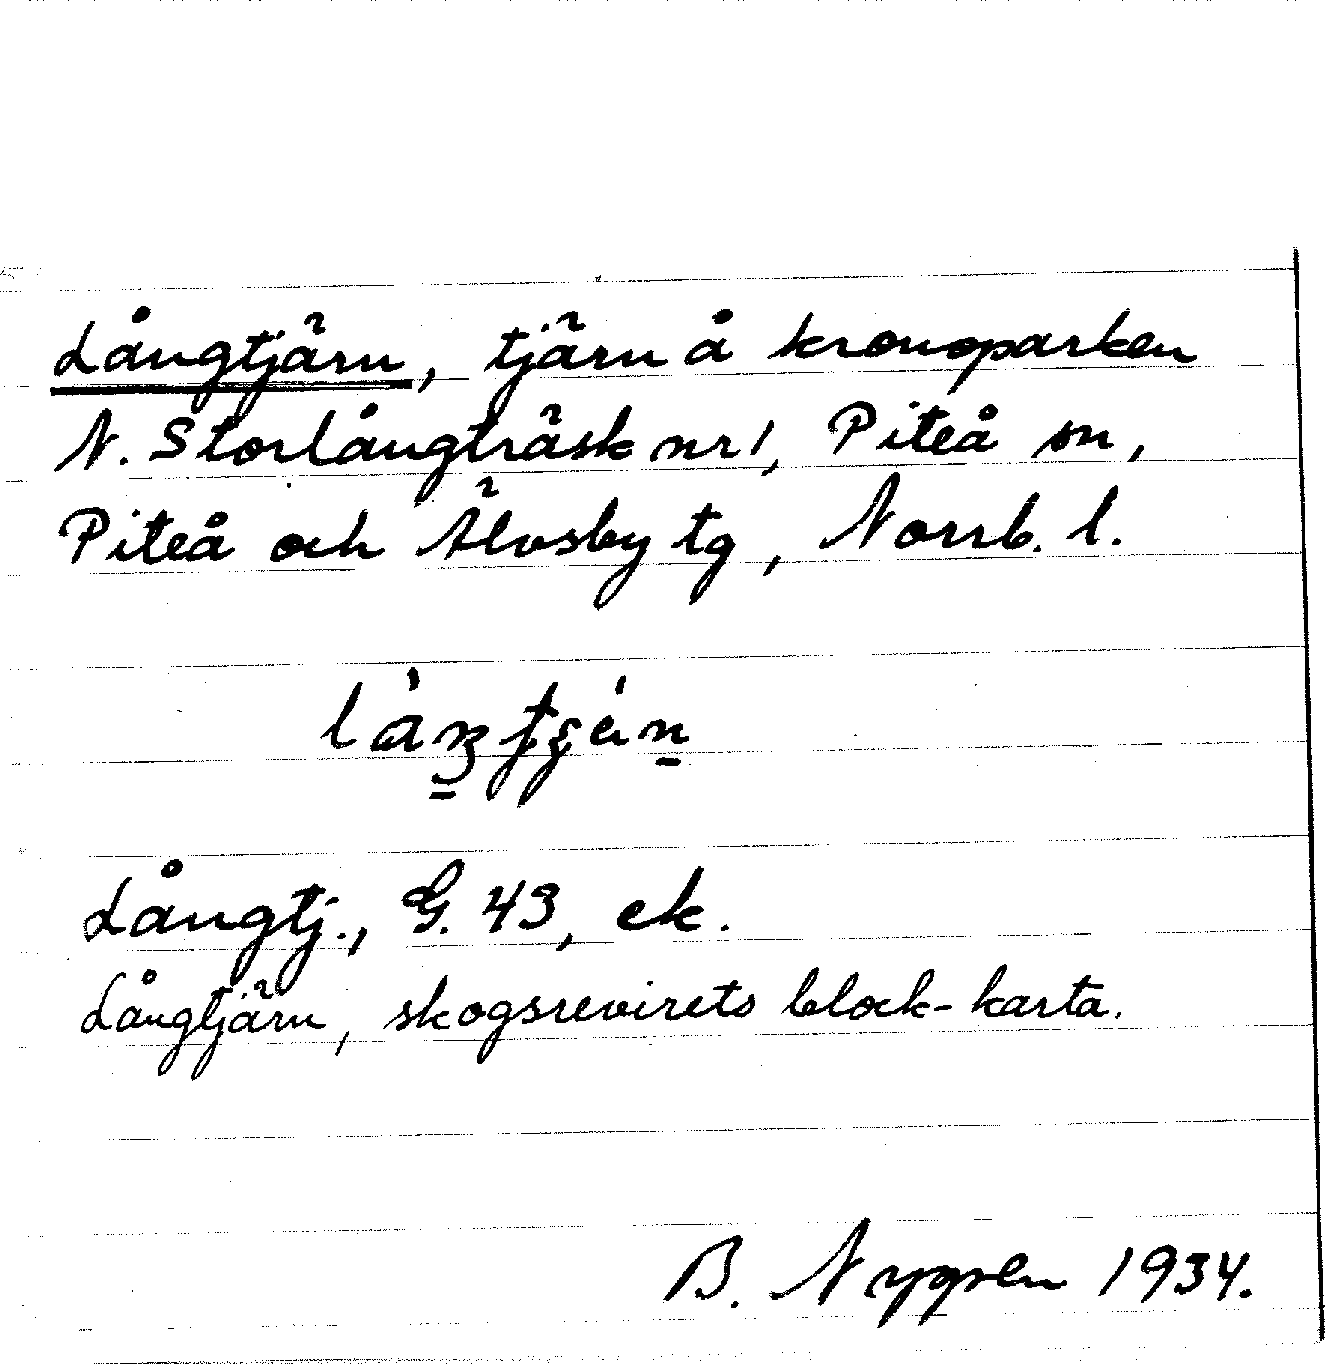 Långtjärn, tjärn å kronoparken
N. Storlångträsk nr 1, Piteå sn,
Piteå och Älvsby tg, Norrb. l.
Långtj., G. 43, ek.
Långtjärn, skogsrevirets block-karta.
B. Nygren 1934.